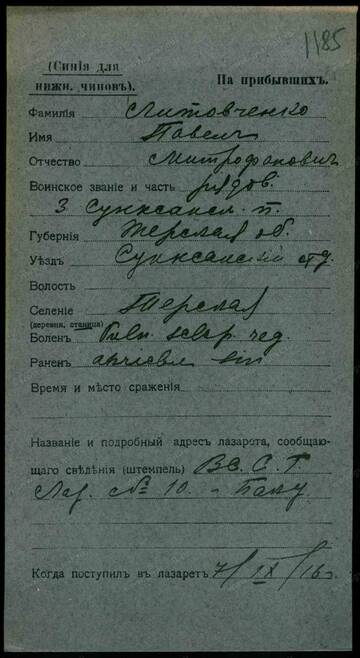 1185
(Синія для нижн. чиновъ).
На прибывшихъ.
Фамилія Литовченко
Имя Павелъ
Отчество Митрофановичъ
Воинское званіе и часть рядов.
3 Сунженск. п.
Губернія Терская об.
Уѣздъ Сунженскій отд.
Волость
Селеніе Терская
(деревня, станица)
Боленъ
Раненъ
Время и мѣсто сраженія
Названіе и подробный адресъ лазарета, сообщаю-
щаго свѣдѣнія (штемпель) В. С. Г.
Лаз. № 10. - Баку
Когда поступилъ въ лазаретъ 7/IX/16.